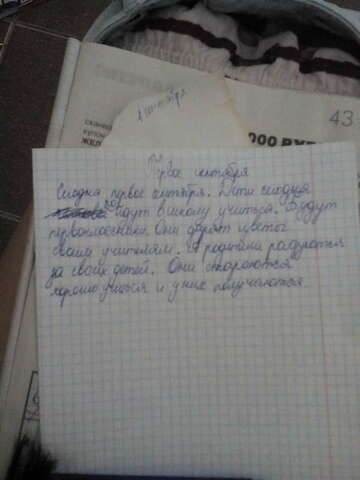 1 сентября
43
сканер
купон
ЖЕЛ
000 РУБ
Первое сентября
Сегодня первое сентября. Дети сегодня
идут в школу учиться. Будут
первоклассники. Они дарят цветы
своим учителям. А родители радуются
за своих детей. Они стараются
хорошо учиться и у них получается